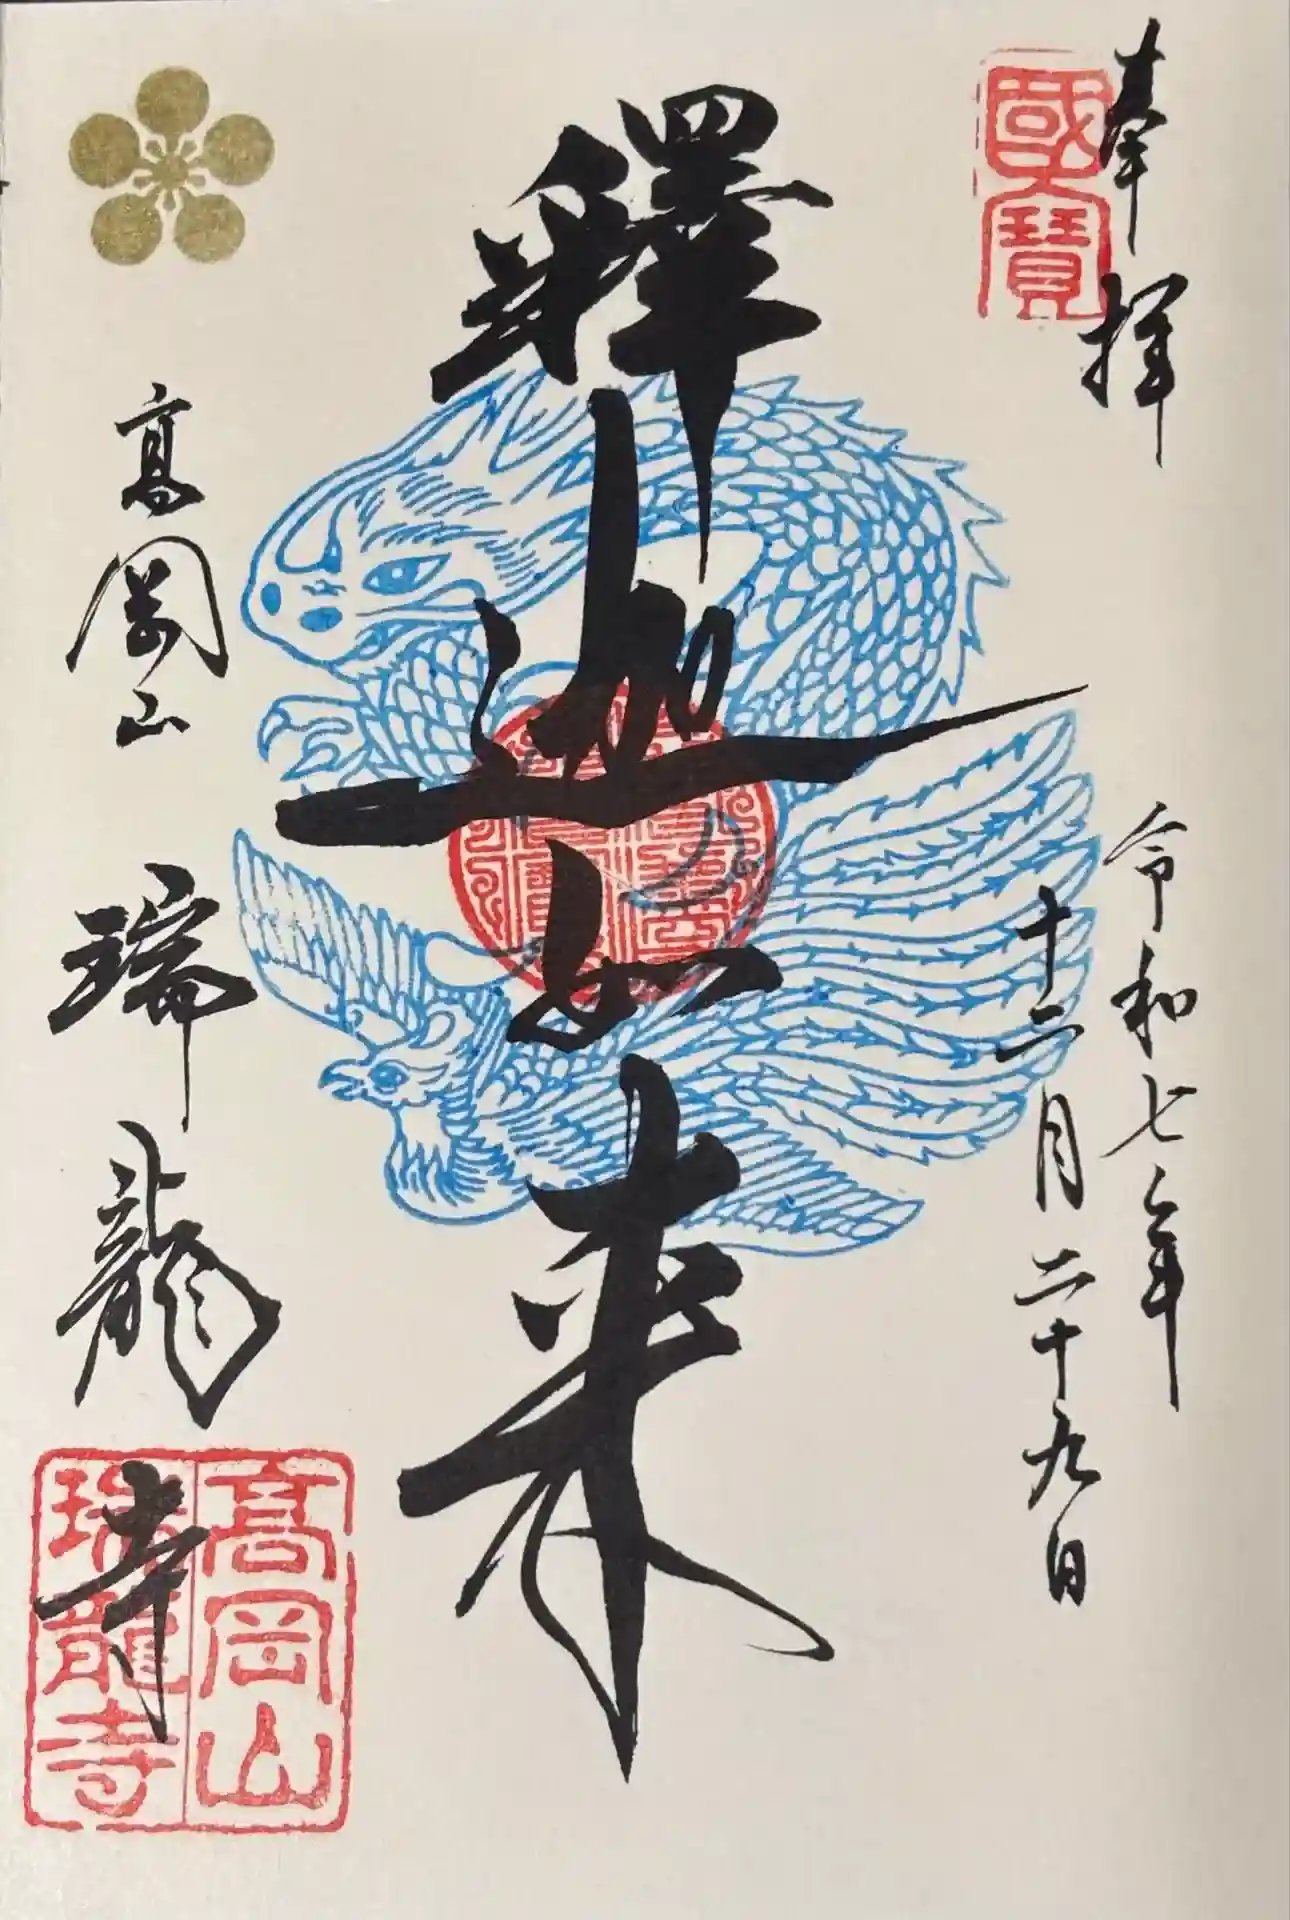 奉拝
國寶
令和七年
十二月二十九日
釋迦如来
高岡山
瑞龍寺
高岡山
瑞龍寺